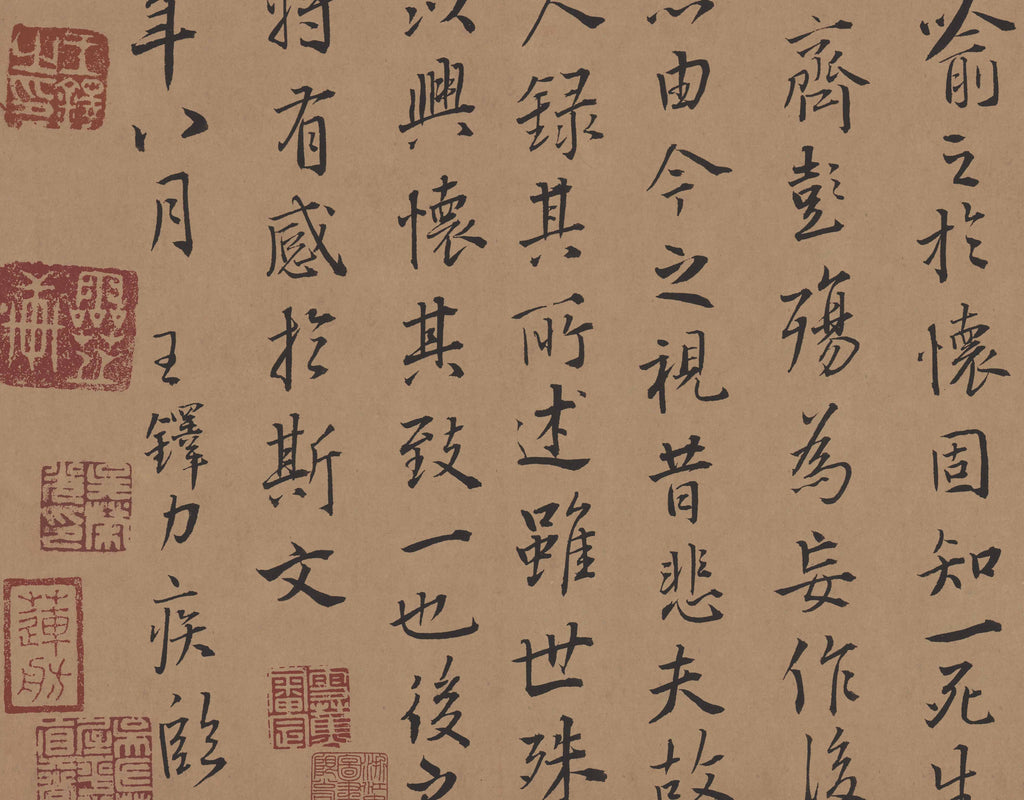 喻之於懷固知一死生
齊彭殤為妄作後
由今之視昔悲夫故
人錄其所述雖世殊
以興懷其致一也後之
將有感於斯文
年八月王鐸力疾臨